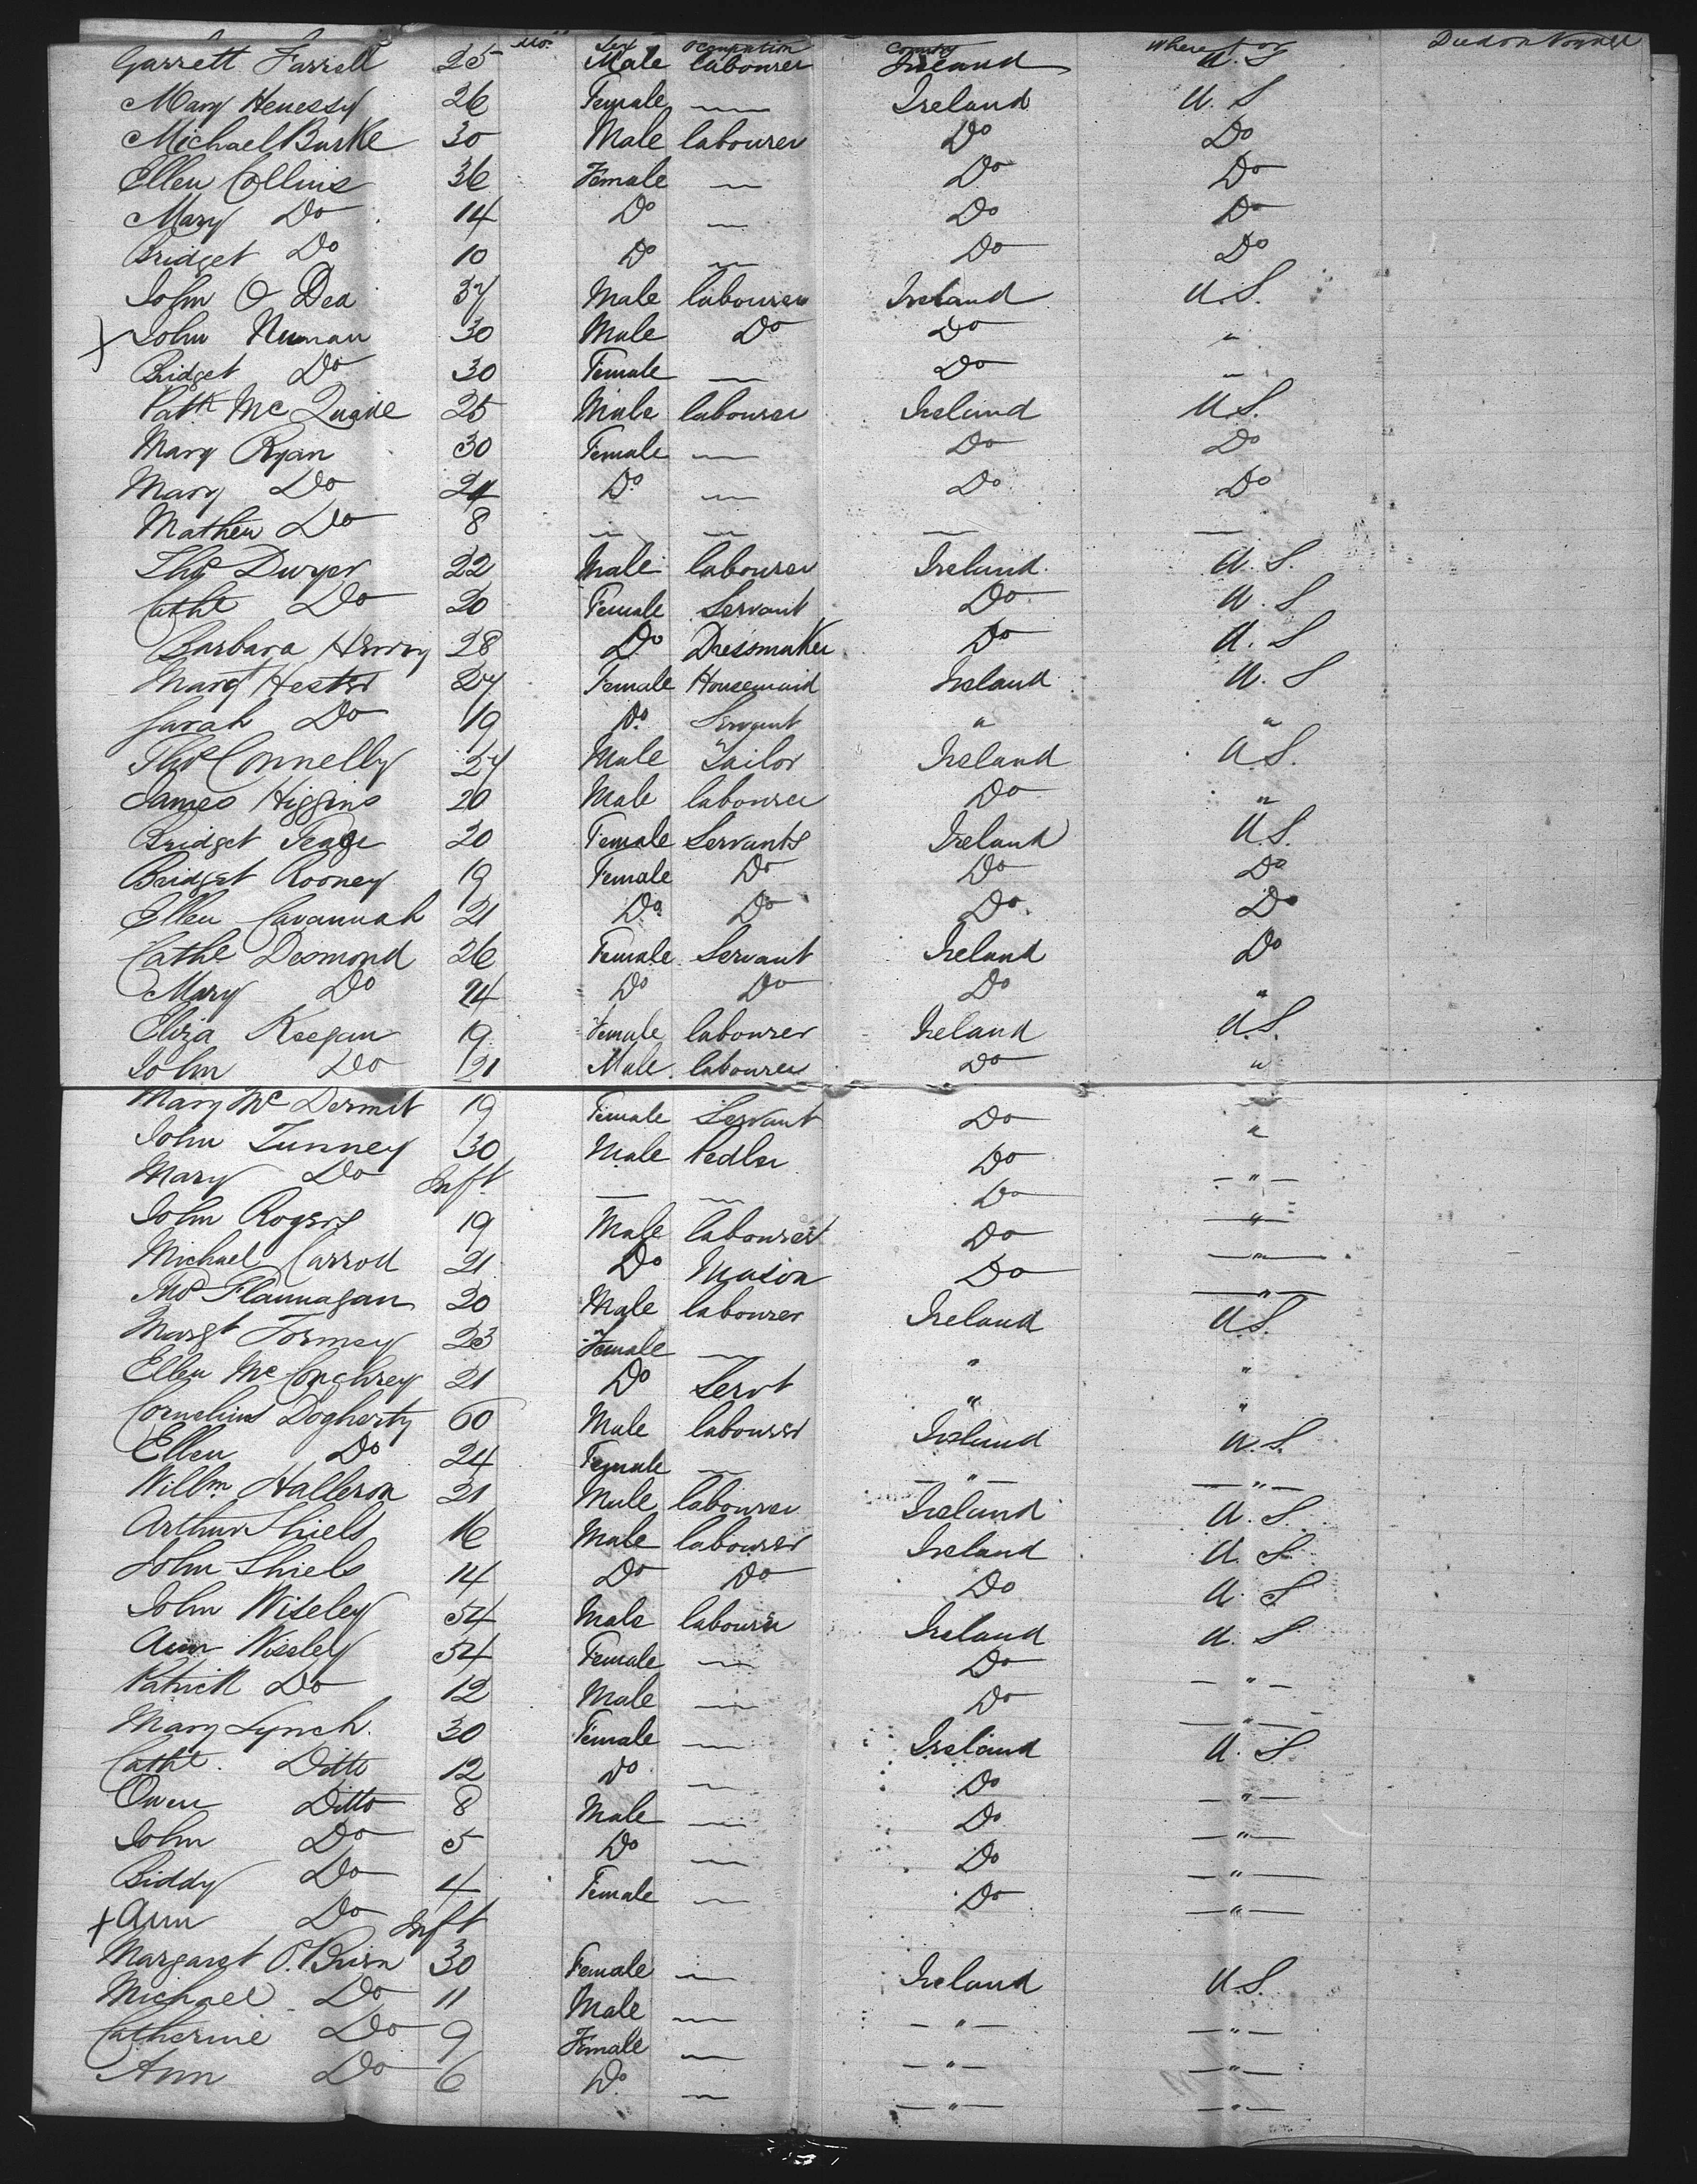 Mo. Sex Occupation Country Where to or Died on Voyage
Garrett Farrell 25 Male labourer Ireland U.S
Mary Henessy 26 Female — Ireland U.S
Michael Burke 30 Male labourer Do Do
Ellen Collins 36 Female — Do Do
Mary Do 14 Do — Do Do
Bridget Do 10 Do — Do Do
John O Dea 37 Male labourer Ireland U.S.
X John Nunan 30 Male Do Do "
Bridget Do 30 Female — Do "
Patk Mc Quade 25 Male labourer Ireland U.S.
Mary Ryan 30 Female — Do Do
Mary Do 24 Do — Do Do
Mathew Do 8 — — — —
Thos Dwyer 22 Male labourer Ireland U.S.
Cathe Do 20 Female Servant Do U.S
Barbara Henry 28 Do Dressmaker Do U.S
Margt Hester 27 Female Housemaid Ireland U.S
Sarah Do 19 Do Servant " "
Thos Connelly 27 Male Tailor Ireland U.S.
James Higgins 20 Male labourer Do "
Bridget 20 Female Servants Ireland U.S.
Bridget Rooney 19 Female Do Do Do
Ellen Cavannah 21 Do Do Do Do
Cathe Desmond 26 Female Servant Ireland Do
Mary Do 24 Do Do Do "
Eliza Keegan 19 Female labourer Ireland U.S.
John Do 21 Male labourer Do "
Mary Mc Dermit 19 Female Servant Do "
John Tunney 30 Male Pedler Do — " —
Mary Do Inft — — Do — " —
John Rogers 19 Male labourer Do — " —
Michael Carrod 21 Do Mason Do — " —
Thos Flannagan 20 Male labourer Ireland U.S.
Margt Tormey 23 Female — " "
Ellen Mc Conchrey 21 Do Servt " "
Cornelius Dogherty 60 Male labourer Ireland U.S.
Ellen Do 24 Female — — " — — " —
Willm Halleron 21 Male labourer Ireland U.S.
Arthur Shiels 16 Male labourer Ireland U.S.
John Shiels 14 Do Do Do U.S
John Wiseley 54 Male labourer Ireland U.S
Ann Wiseley 54 Female — Do — " —
Patrick Do 12 Male — Do — " —
Mary Lynch. 30 Female — Ireland U.S
Cathe. Ditto 12 Do — Do — " —
Owen Ditto 8 Male — Do — " —
John Do 5 Do — Do — " —
Biddy Do 4 Female — Do — " —
X Ann Do Inft
Margaret O'Brien 30 Female — Ireland U.S.
Michael Do 11 Male — — " — — " —
Catherine Do 9 Female — — " — — " —
Ann Do 6 Do — — " — — " —